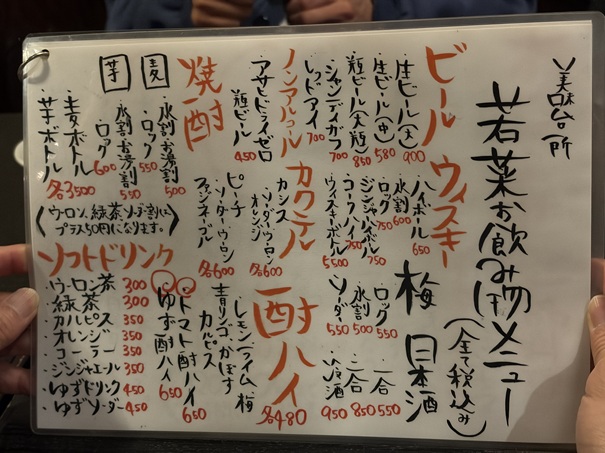 美味台所
若菜お飲み物メニュー
(全て税込み)
ビール
生ビール(大) 900
生ビール(中) 580
瓶ビール(大瓶) 850
シャンディガフ 700
レッドアイ 700
ノンアルコール
アサヒドライゼロ
瓶ビール 450
焼酎
麦
水割 お湯割 500
ロック 550
芋
水割 お湯割 550
ロック 600
麦ボトル
芋ボトル
各3500
〈ウーロン、緑茶、ソーダ割は
プラス50円になります。〉
ウィスキー
ハイボール 650
水割 700
ロック 750
ジンジャーハイボール 750
コークハイ 750
ウィスキーボトル 5500
カクテル
カシス
・ソーダ・ウーロン
・オレンジ 各600
ピーチ
・ソーダ・ウーロン
・ファジーネーブル 各600
ソフトドリンク
・ウーロン茶 300
・緑茶 300
・カルピス 350
・オレンジ 350
・コーラ 350
・ジンジャエール 350
・ゆずドリンク 450
・ゆずソーダー 450
梅
ロック 550
水割 550
ソーダ 550
日本酒
一合 550
二合 850
冷酒 950
酎ハイ
・レモン・ライム・梅
・青リンゴ・かぼす
・カルピス
各480
・トマト酎ハイ 650
・ゆず酎ハイ 650